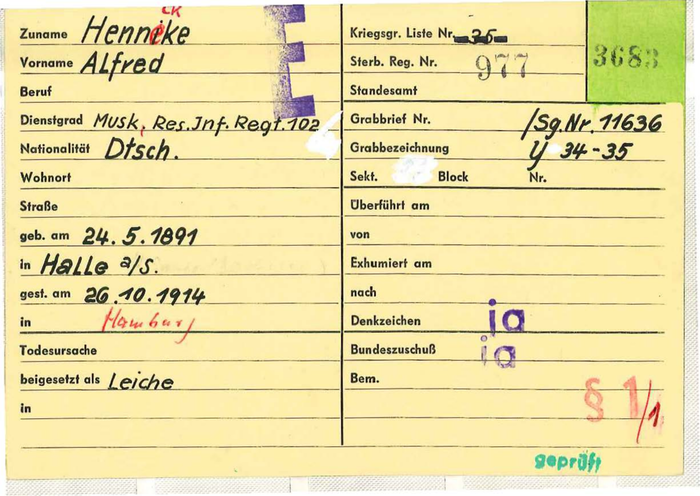 Zuname Hennike CK e
Vorname Alfred
Beruf
Dienstgrad Musk, Res. Inf. Regt. 102
Nationalität Dtsch.
Wohnort
Straße
geb. am 24.5.1891
in Halle a/S.
gest. am 26.10.1914
in Hamburg
Todesursache
beigesetzt als Leiche
in
E
Kriegsgr. Liste Nr. 35
Sterb. Reg. Nr. 977
Standesamt
3683
Grabbrief Nr. /Sg.Nr. 11636
Grabbezeichnung Y 34-35
Sekt. Block Nr.
Überführt am
von
Exhumiert am
nach
Denkzeichen ja
Bundeszuschuß ja
Bem.
§ 1/1
geprüft